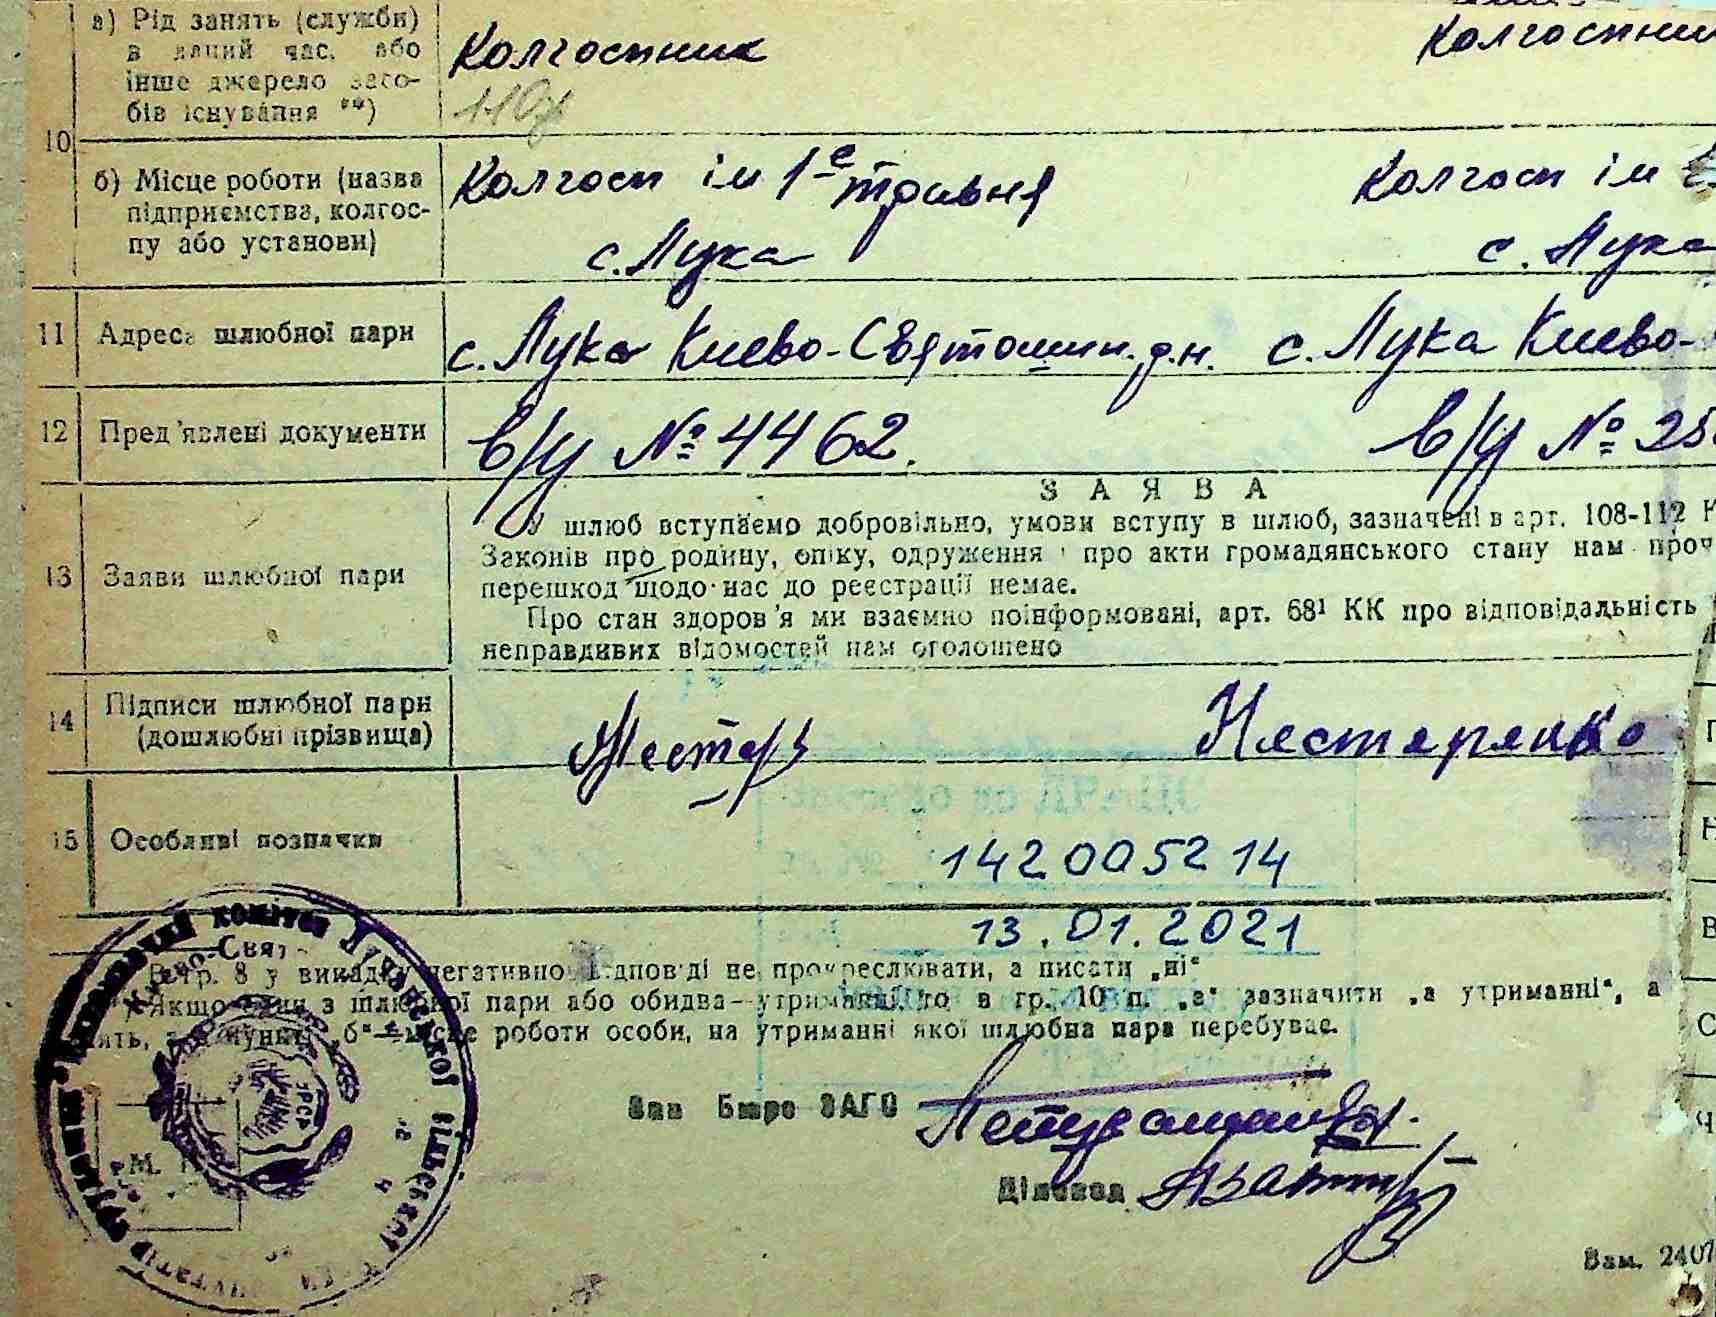 а) Рід занять (служби)
в даний час, або
інше джерело засо-
бів існування **)
Колгоспник
Колгоспни
110
10
б) Місце роботи (назва
підприємства, колгос-
пу або установи)
Колгосп ім 1е травня
с. Лука
Колгосп ім
с. Лука
11 Адреса шлюбної пари
с. Лука Києво-Святошин. р.н. с. Лука Києво-
12 Пред'явлені документи
в/у № 4462.
в/у № 25
13 Заяви шлюбної пари
ЗАЯВА
У шлюб вступаємо добровільно, умови вступу в шлюб, зазначені в арт. 108-112 К
Законів про родину, опіку, одруження і про акти громадянського стану нам проч
перешкод щодо нас до реєстрації немає.
Про стан здоров'я ми взаємно поінформовані, арт. 68¹ КК про відповідальність
неправдивих відомостей нам оголошено
14 Підписи шлюбної пари
(дошлюбні прізвища)
Нестер
Нестеренко
15 Особливі позначки
142005214
13.01.2021
В гр. 8 у випадку негативної відповіді не прокреслювати, а писати „ні“
Якщо один з шлюбної пари або обидва—утриманці, то в гр. 10 п. „а“ зазначити „а утриманні“, а
пункті „б“—місце роботи особи, на утриманні якої шлюбна пара перебуває.
Зав Бюро ЗАГС
Діловод
Виконавчий комітет
Києво-Свят
УРСР
М. П.
Зам. 2407
Г
Н
В
С
Ч